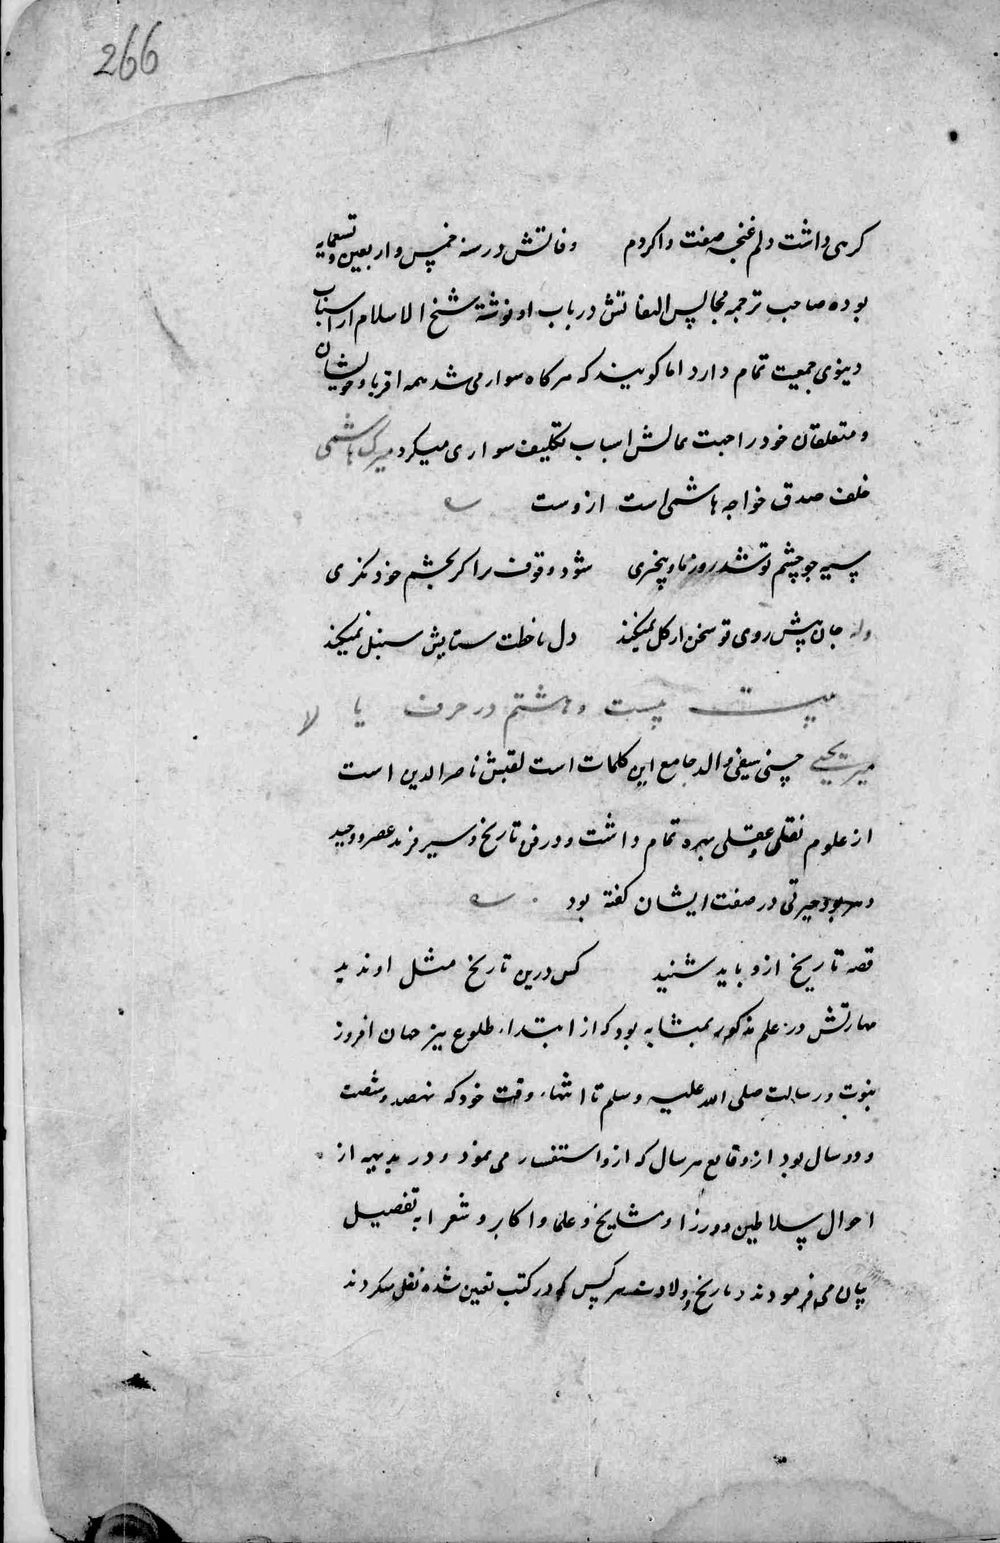 266
کرهی داشت دلم غنچه صفت واکردم وفاتش در سنه خمس و اربعین و تسعمایه
بوده صاحب ترجمه مجالس النفائس در باب او نوشته شیخ الاسلام از اسباب
دینوی جمعیت تمام دارد اما کویند که هرکاه سوار می شد همه اقربا و خویشان
و متعلقان خود را جهت اسباب تکلیف سواری میکرد میرک هاشمی
خلف صدق خواجه هاشمی است ازوست
چو چشم تو شد روز ما و بیخبری شود وقوف را کر بچشم خود نکری
وله جان پیش روی تو سخن از کل نمیکند دل با خطت ستایش سنبل نمیکند
بیت بیست و هشتم در حرف یا لا
میر یحیی حسنی سیفی والد جامع این کلمات است لقبش ناصرالدین است
از علوم نقلی و عقلی بهره تمام داشت و در فن تاریخ و سیر فرید عصر و وحید
دهر بود حیرتی در صفت ایشان کفته بود
قصه تاریخ ازو باید شنید کس درین تاریخ مثل او ندید
مهارتش در علم مذکور بمثابه بود که از ابتداء طلوع نیر جهان افروز
نبوت و رسالت صلی الله علیه وسلم تا انتهاء وقت خود که نهصد و شصت
و دو سال بود از وقایع هر سال که ازو استفسار می نمود و در بدیهه از
احوال سلاطین و وزرا و مشایخ و علما و اکابر و شعرا به تفصیل
بیان می فرمودند و تاریخ ولادت هر کس که در کتب تعین شده نقل میکردند